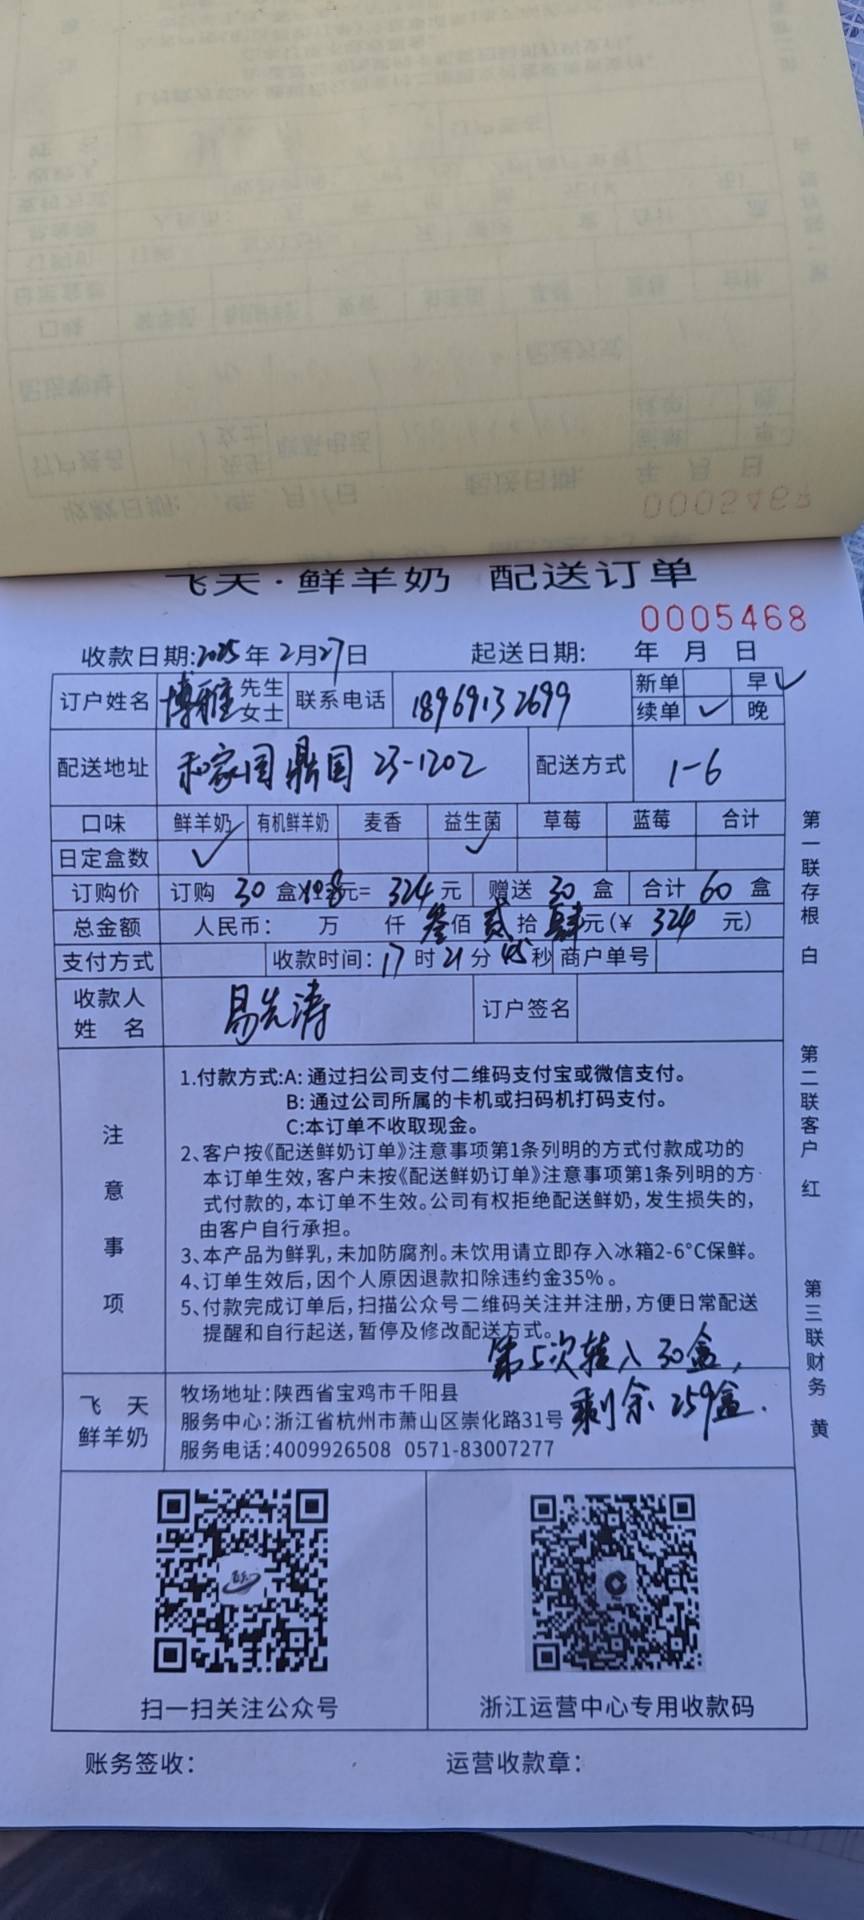 飞天·鲜羊奶 配送订单
0005468
收款日期:2025年2月27日 起送日期: 年 月 日
订户姓名 博雅 先生 女士 联系电话 18969132699 新单 早✓
续单 ✓ 晚
配送地址 和家园鼎园 23-1202 配送方式 1-6
口味 鲜羊奶 有机鲜羊奶 麦香 益生菌 草莓 蓝莓 合计
日定盒数 ✓ ✓
订购价 订购 30 盒×10.8元= 324 元 赠送 30 盒 合计 60 盒
总金额 人民币: 万 仟 叁佰 贰拾 肆元(¥ 324 元)
支付方式 收款时间:17时21分05秒 商户单号
收款人姓名 易先涛 订户签名
注意事项
1.付款方式:A:通过扫公司支付二维码支付宝或微信支付。
B:通过公司所属的卡机或扫码机打码支付。
C:本订单不收取现金。
2、客户按《配送鲜奶订单》注意事项第1条列明的方式付款成功的
本订单生效,客户未按《配送鲜奶订单》注意事项第1条列明的方
式付款的,本订单不生效。公司有权拒绝配送鲜奶,发生损失的,
由客户自行承担。
3、本产品为鲜乳,未加防腐剂。未饮用请立即存入冰箱2-6°C保鲜。
4、订单生效后,因个人原因退款扣除违约金35%。
5、付款完成订单后,扫描公众号二维码关注并注册,方便日常配送
提醒和自行起送,暂停及修改配送方式。
第5次转入30盒,
剩余259盒.
飞天鲜羊奶
牧场地址:陕西省宝鸡市千阳县
服务中心:浙江省杭州市萧山区崇化路31号
服务电话:4009926508 0571-83007277
扫一扫关注公众号 浙江运营中心专用收款码
账务签收: 运营收款章:
第一联存根 白
第二联客户 红
第三联财务 黄